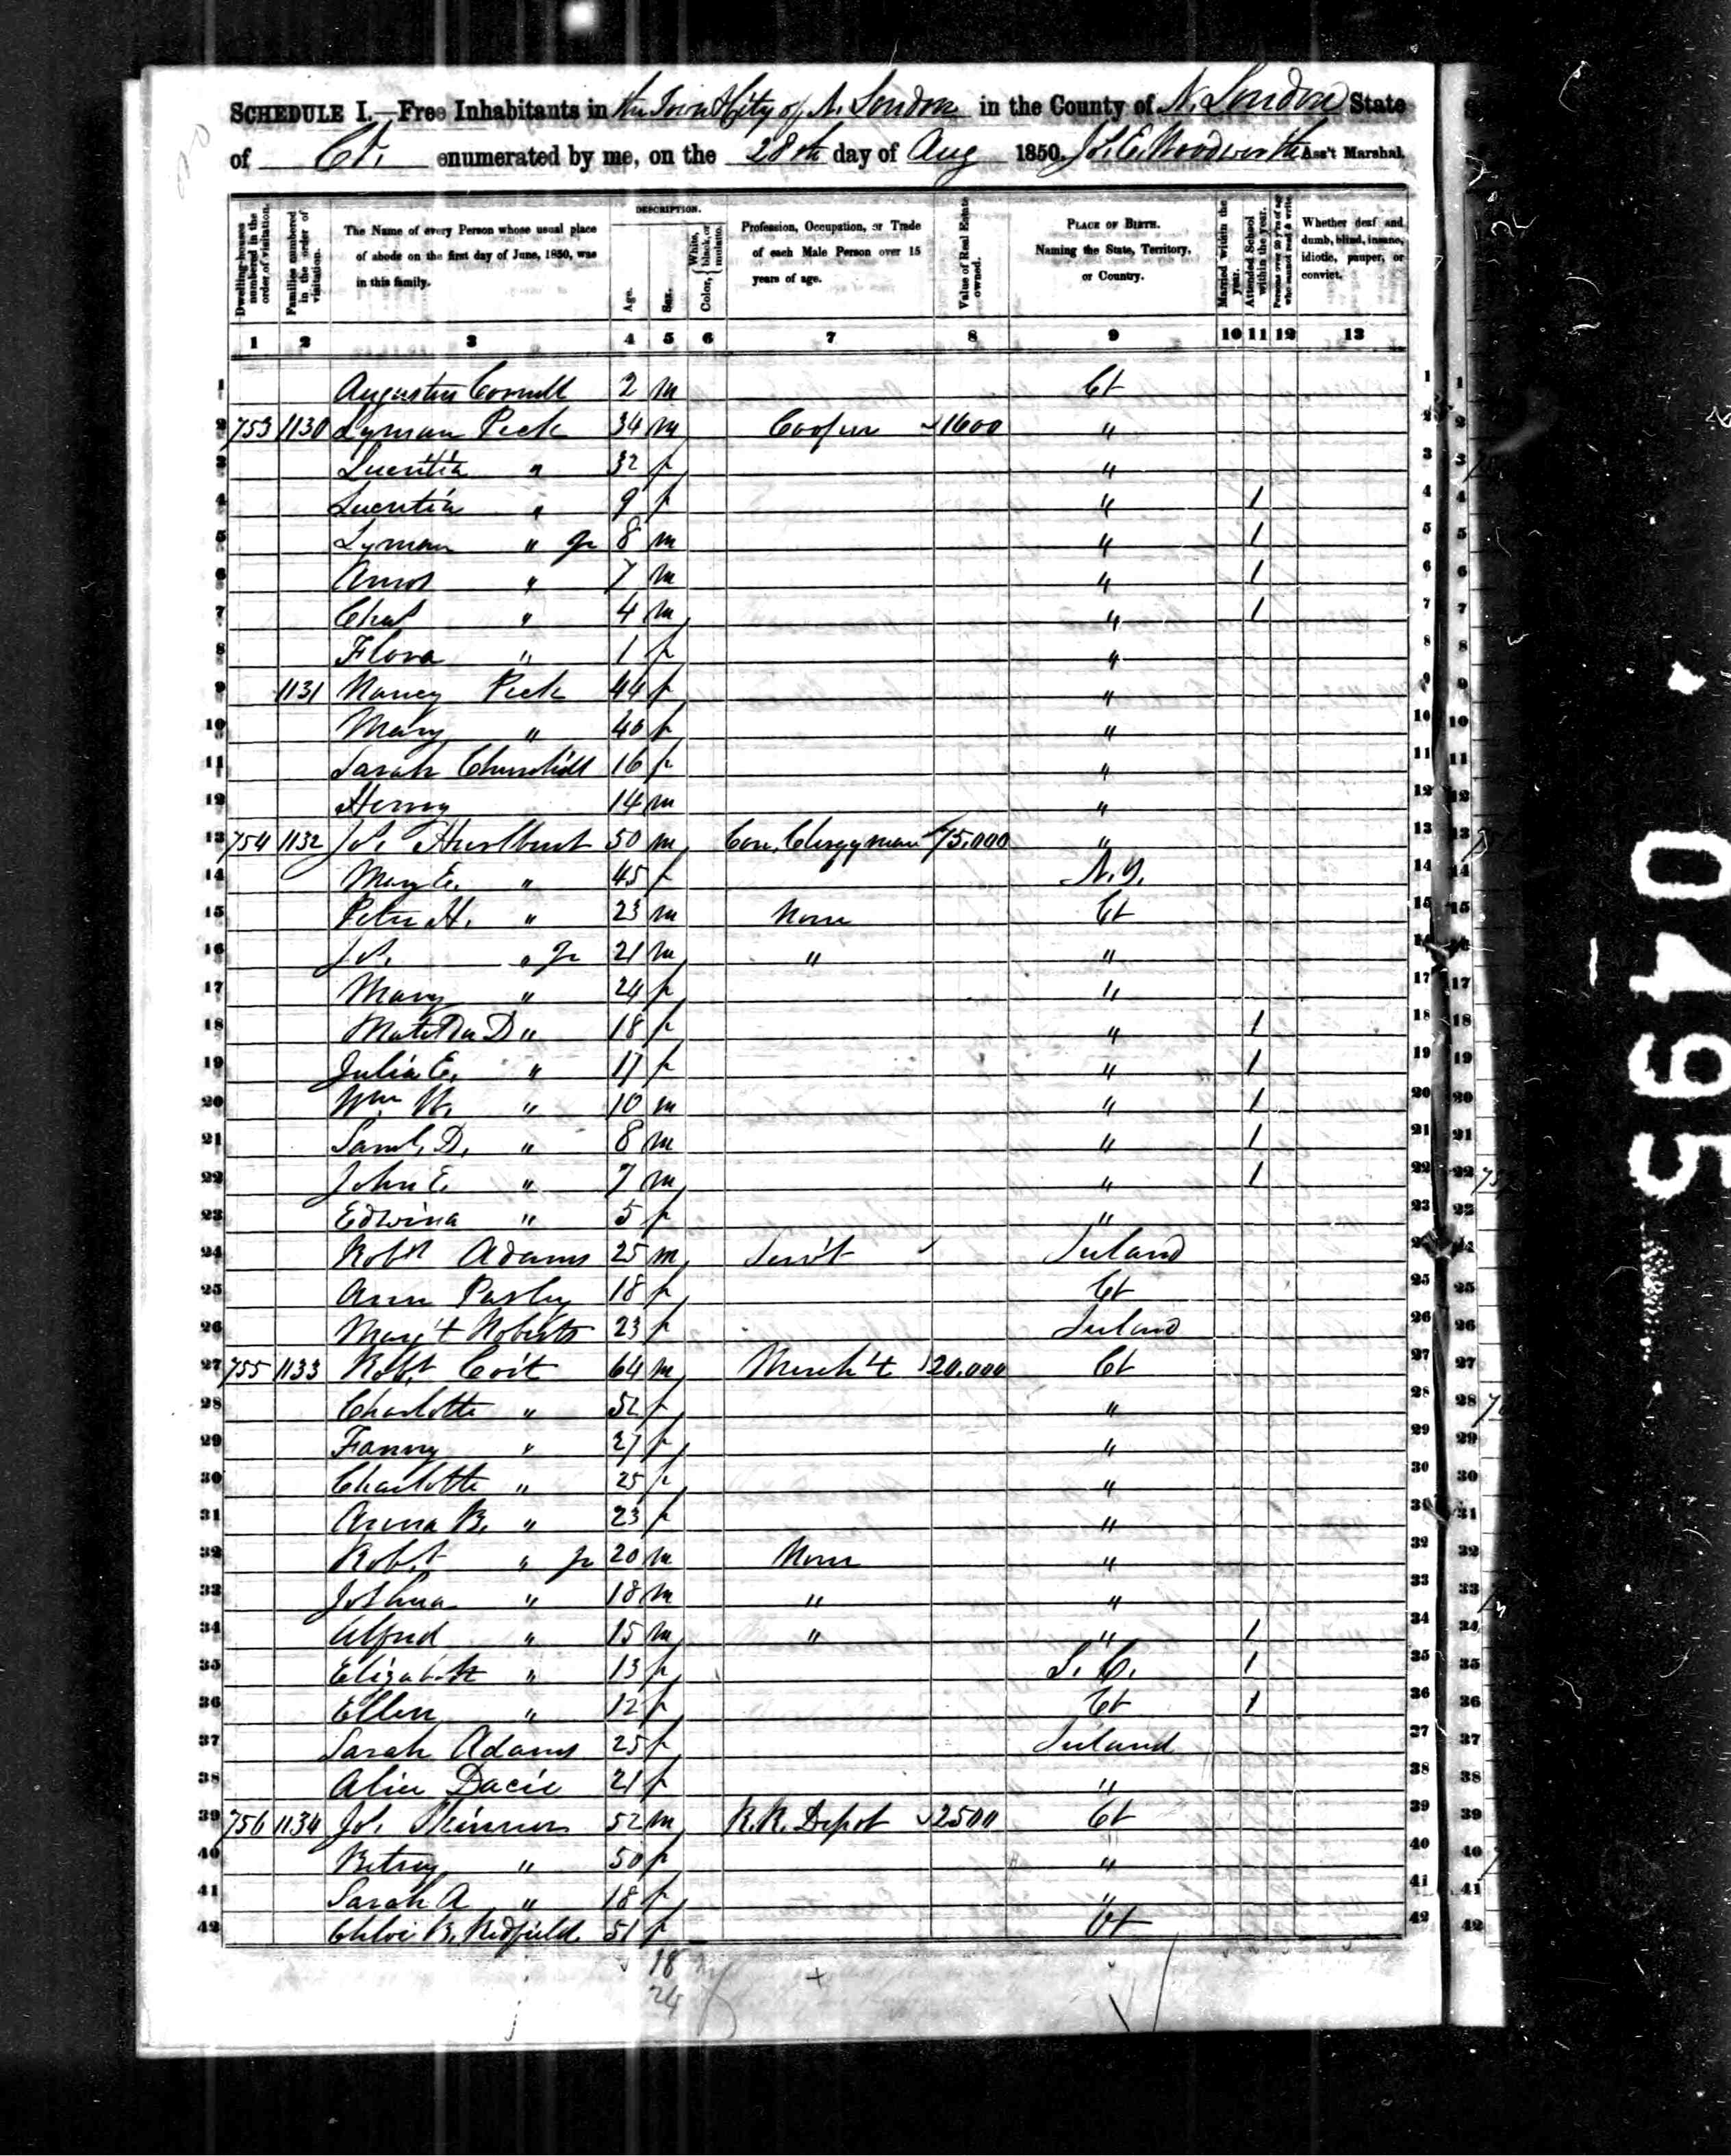 SCHEDULE I.—Free Inhabitants in the Town & City of N. London in the County of N. London State
of Ct. enumerated by me, on the 28th day of Aug 1850. J. L. E. Woodworth Ass't Marshal.
Dwelling-houses numbered in the order of visitation.
Families numbered in the order of visitation.
The Name of every Person whose usual place of abode on the first day of June, 1850, was in this family.
DESCRIPTION.
Age.
Sex.
Color, { White, black, or mulatto.
Profession, Occupation, or Trade of each Male Person over 15 years of age.
Value of Real Estate owned.
PLACE OF BIRTH. Naming the State, Territory, or Country.
Married within the year.
Attended School within the year.
Persons over 20 y'rs of age who cannot read & write.
Whether deaf and dumb, blind, insane, idiotic, pauper, or convict.
1 2 3 4 5 6 7 8 9 10 11 12 13
1 Augustus 2 m Ct 1
2 753 1130 Lyman Peck 34 m Cooper 1600 " 2
3 Lucretia " 32 f " 3
4 Lucretia " 9 f " 1 4
5 Lyman " Jr 8 m " 1 5
6 Amos " 7 m " 1 6
7 Chas " 4 m " 1 7
8 Flora " 1 f " 8
9 1131 Nancy Peck 44 f " 9
10 Mary " 40 f " 10
11 Sarah Churchill 16 f " 11
12 Henry 14 m " 12
13 754 1132 Jos. Hurlburt 50 m Con. Clergyman 75,000 " 13
14 Mary E. " 45 f N.Y. 14
15 Peter H. " 23 m None Ct 15
16 Jos. " Jr 21 m " " 16
17 Mary " 24 f " 17
18 Matilda D " 18 f " 1 18
19 Julia E. " 17 f " 1 19
20 Wm W. " 10 m " 1 20
21 Saml. D. " 8 m " 1 21
22 John E. " 7 m " 1 22
23 Edwina " 5 f " 23
24 Robt Adams 25 m Serv't Ireland 24
25 Ann 18 f Ct 25
26 Marg't Roberts 23 f Ireland 26
27 755 1133 Robt Coit 64 m Merch't 20.000 Ct 27
28 Charlotte " 52 f " 28
29 Fanny " 27 f " 29
30 Charlotte " 25 f " 30
31 Anna B. " 23 f " 31
32 Robt " Jr 20 m None " 32
33 Joshua " 18 m " " 33
34 Alfred " 15 m " " 1 34
35 Elizabeth " 13 f S. C. 1 35
36 Ellen " 12 f Ct 1 36
37 Sarah Adams 25 f Ireland 37
38 Alice Dacie 21 f " 38
39 756 1134 Jos. Skinner 52 m R.R. Depot 2500 Ct 39
40 Betsey " 50 f " 40
41 Sarah A " 18 f " 41
42 Chloe B. Redfield 51 f Vt 42
18
24
0495